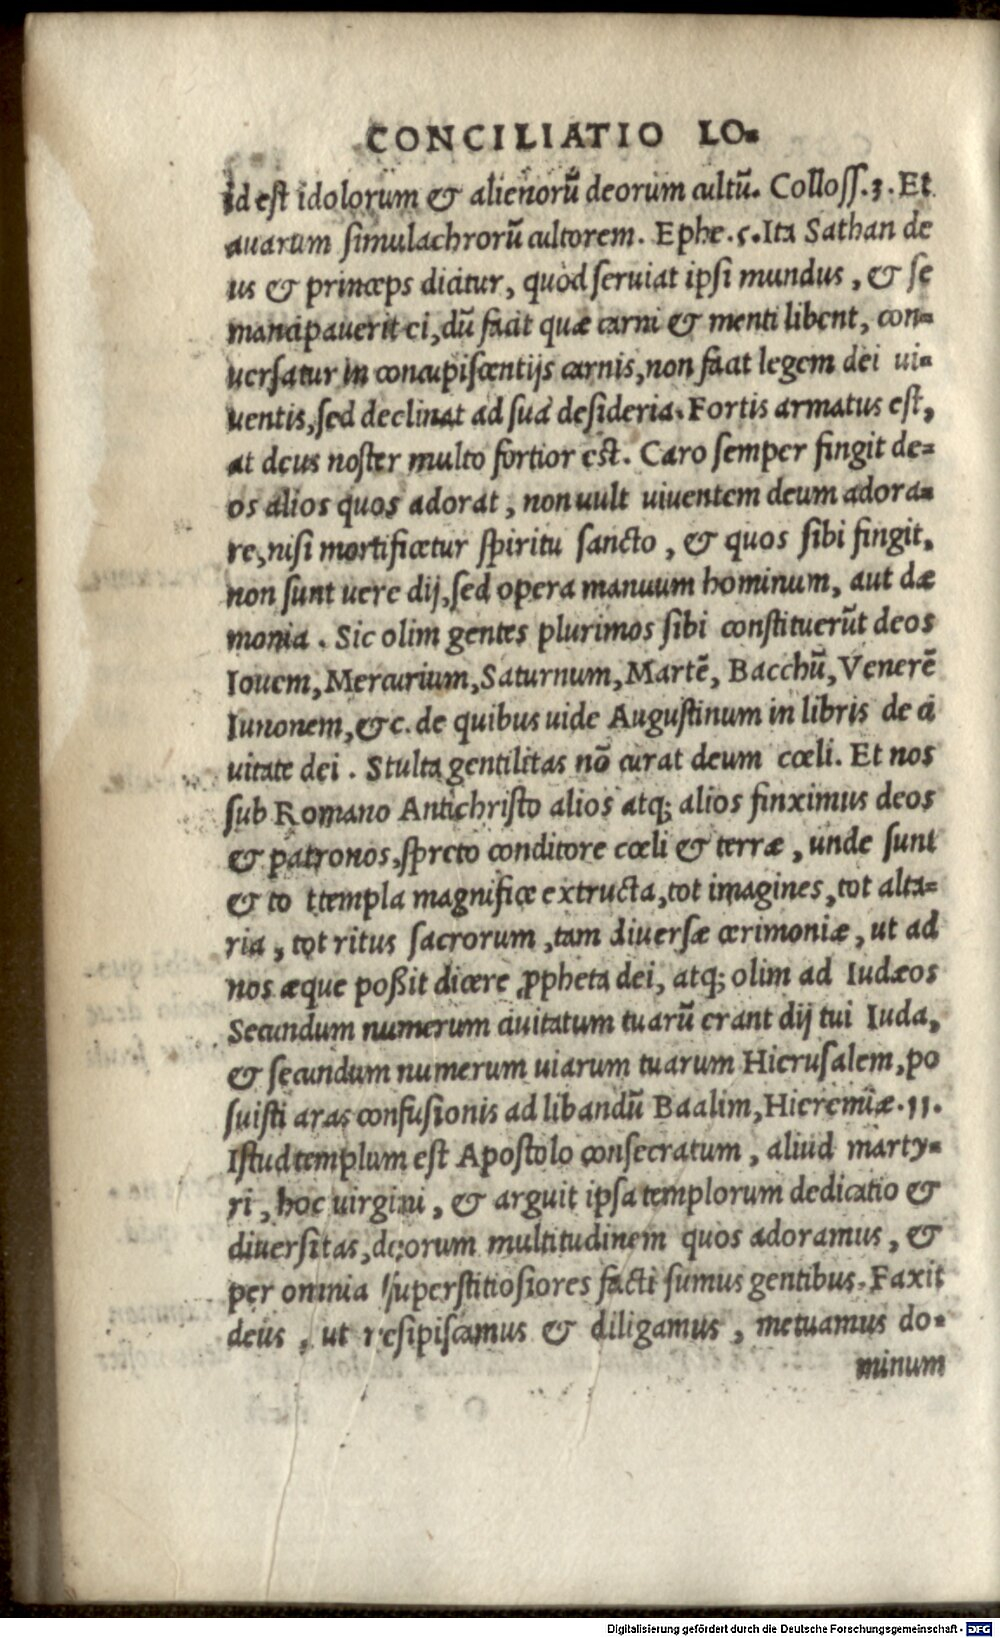 CONCILIATIO LO-
id est idolorum & alienorū deorum cultū. Coloss.3. Et
auarum simulachrorū cultorem. Ephe.5. Ita Sathan de
us & princeps dicitur, quòd seruiat ipsi mundus, & se
mancipauerit ei, dū facit quæ carni & menti libent, con-
uersatur in concupiscentijs carnis, non facit legem dei ui-
uentis, sed declinat ad sua desideria. Fortis armatus est,
at deus noster multo fortior est. Caro semper fingit de-
os alios quos adorat, non uult uiuentem deum adora-
re, nisi mortificetur spiritu sancto, & quos sibi fingit,
non sunt uere dij, sed opera manuum hominum, aut dæ
monia. Sic olim gentes plurimos sibi constituerūt deos
Iouem, Mercurium, Saturnum, Martē, Bacchū, Venerē
Iunonem, &c. de quibus uide Augustinum in libris de ci
uitate dei. Stulta gentilitas nō curat deum cœli. Et nos
sub Romano Antichristo alios atq; alios finximus deos
& patronos, spreto conditore cœli & terræ, unde sunt
& to ttempla magnifice extructa, tot imagines, tot alta-
ria, tot ritus sacrorum, tam diuersæ cerimoniæ, ut ad
nos æque poßit dicere ꝓpheta dei, atq; olim ad Iudæos
Secundum numerum ciuitatum tuarū erant dij tui Iuda,
& secundum numerum uiarum tuarum Hierusalem, po
suisti aras confusionis ad libandū Baalim, Hieremiæ.11.
Istud templum est Apostolo consecratum, aliud marty-
ri, hoc uirgini, & arguit ipsa templorum dedicatio &
diuersitas, deorum multitudinem quos adoramus, &
per omnia superstitiosiores facti sumus gentibus. Faxit
deus, ut resipiscamus & diligamus, metuamus do-
minum
Digitalisierung gefördert durch die Deutsche Forschungsgemeinschaft - DFG